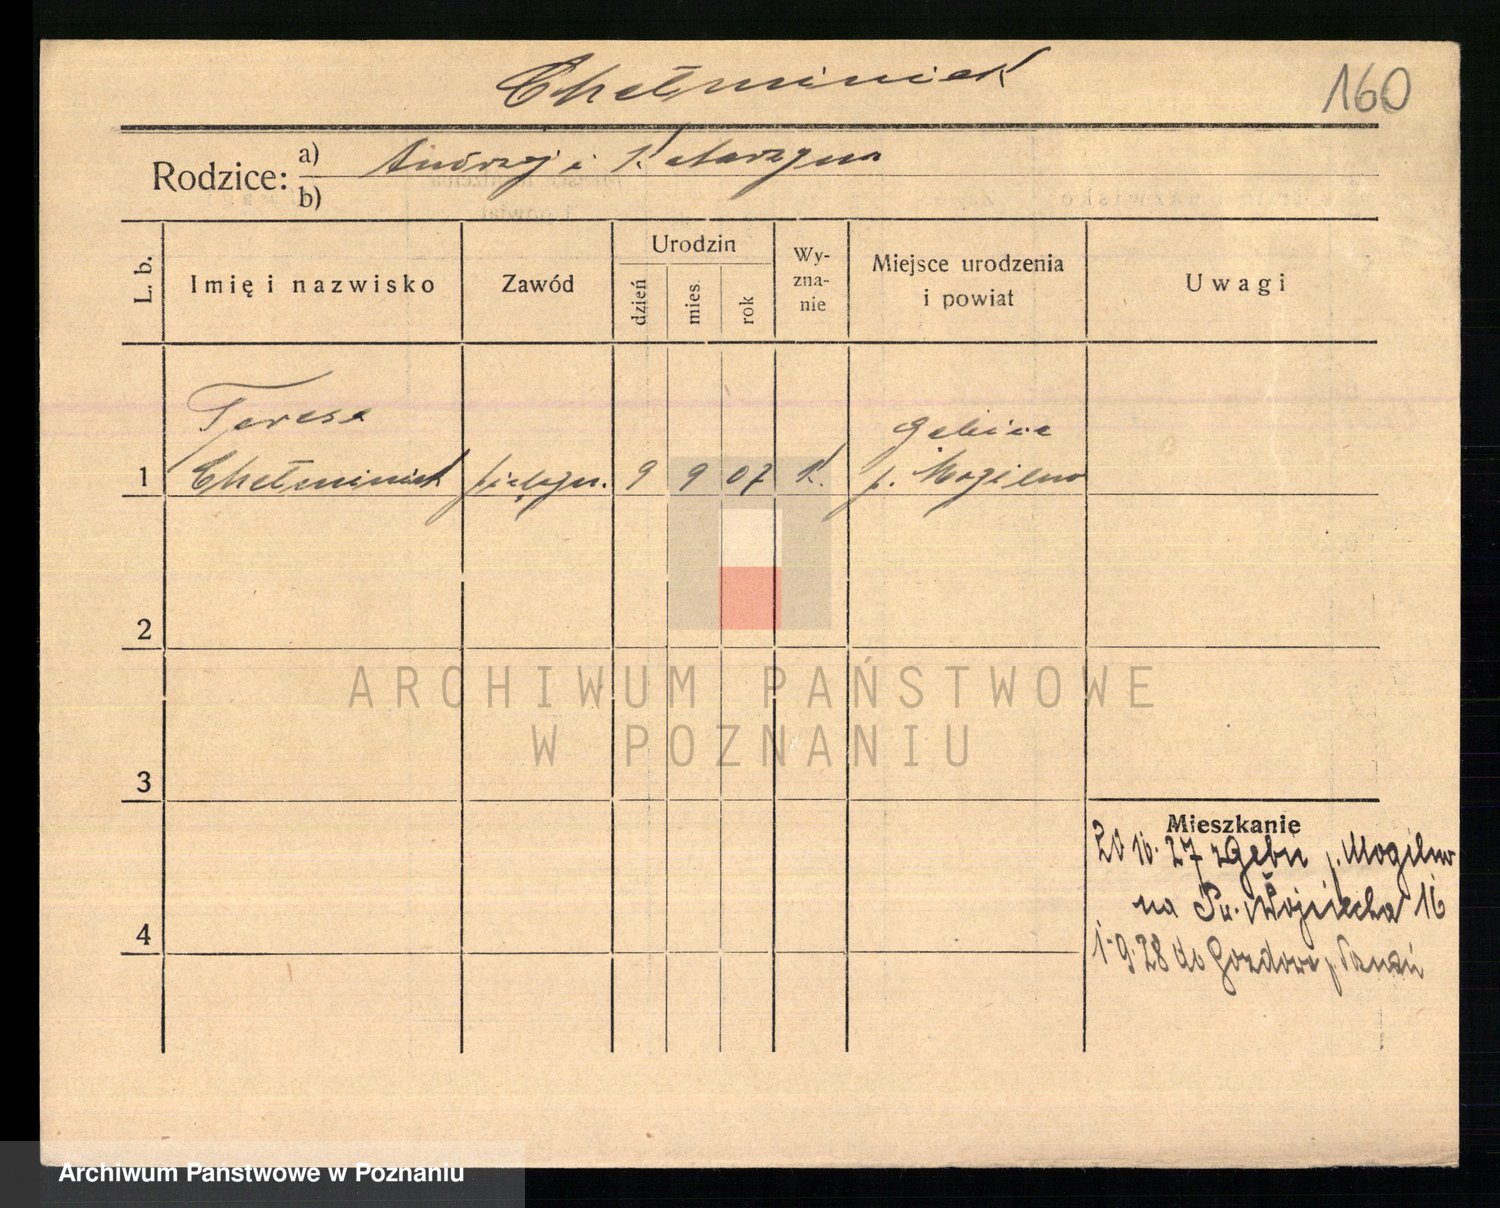 Chełminiak
160
Rodzice: a) Andrzej i Katarzyna
b)
L. b.
Imię i nazwisko
Zawód
Urodzin
dzień
mies.
rok
Wy-
zna-
nie
Miejsce urodzenia
i powiat
Uwagi
Teresa
Gębice
1 Chełminiak pielęgn. 9 9 07 k. p. Mogilno
2
ARCHIWUM PAŃSTWOWE
W POZNANIU
3
Mieszkanie
20 10. 27 z Gębic p. Mogilno
na Św. Wojciecha 16
4
1-9.28 do p. Poznań
Archiwum Państwowe w Poznaniu